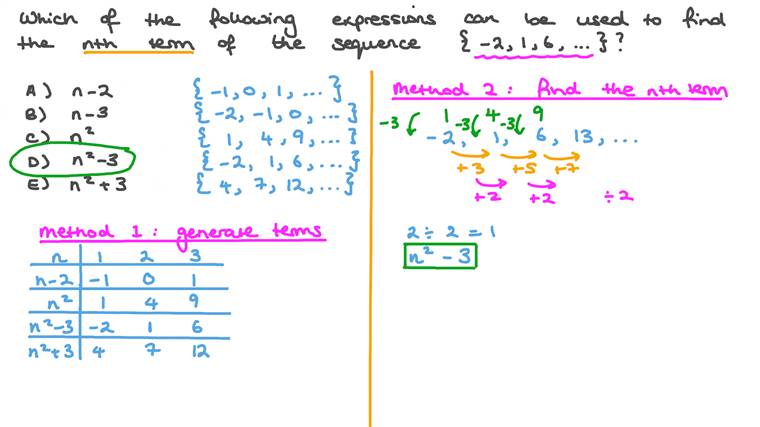 Which of the following expressions can be used to find
the nth term of the sequence { -2, 1, 6, ... } ?
A) n-2 { -1, 0, 1, ... }
B) n-3 { -2, -1, 0, ... }
C) n² { 1, 4, 9, ... }
D) n²-3 { -2, 1, 6, ... }
E) n²+3 { 4, 7, 12, ... }
method 1: generate terms
n 1 2 3
n-2 -1 0 1
n² 1 4 9
n²-3 -2 1 6
n²+3 4 7 12
method 2: find the nth term
1 4 9
-3 -3 -3
-2, 1, 6, 13, ...
+3 +5 +7
+2 +2 ÷2
2 ÷ 2 = 1
n² - 3